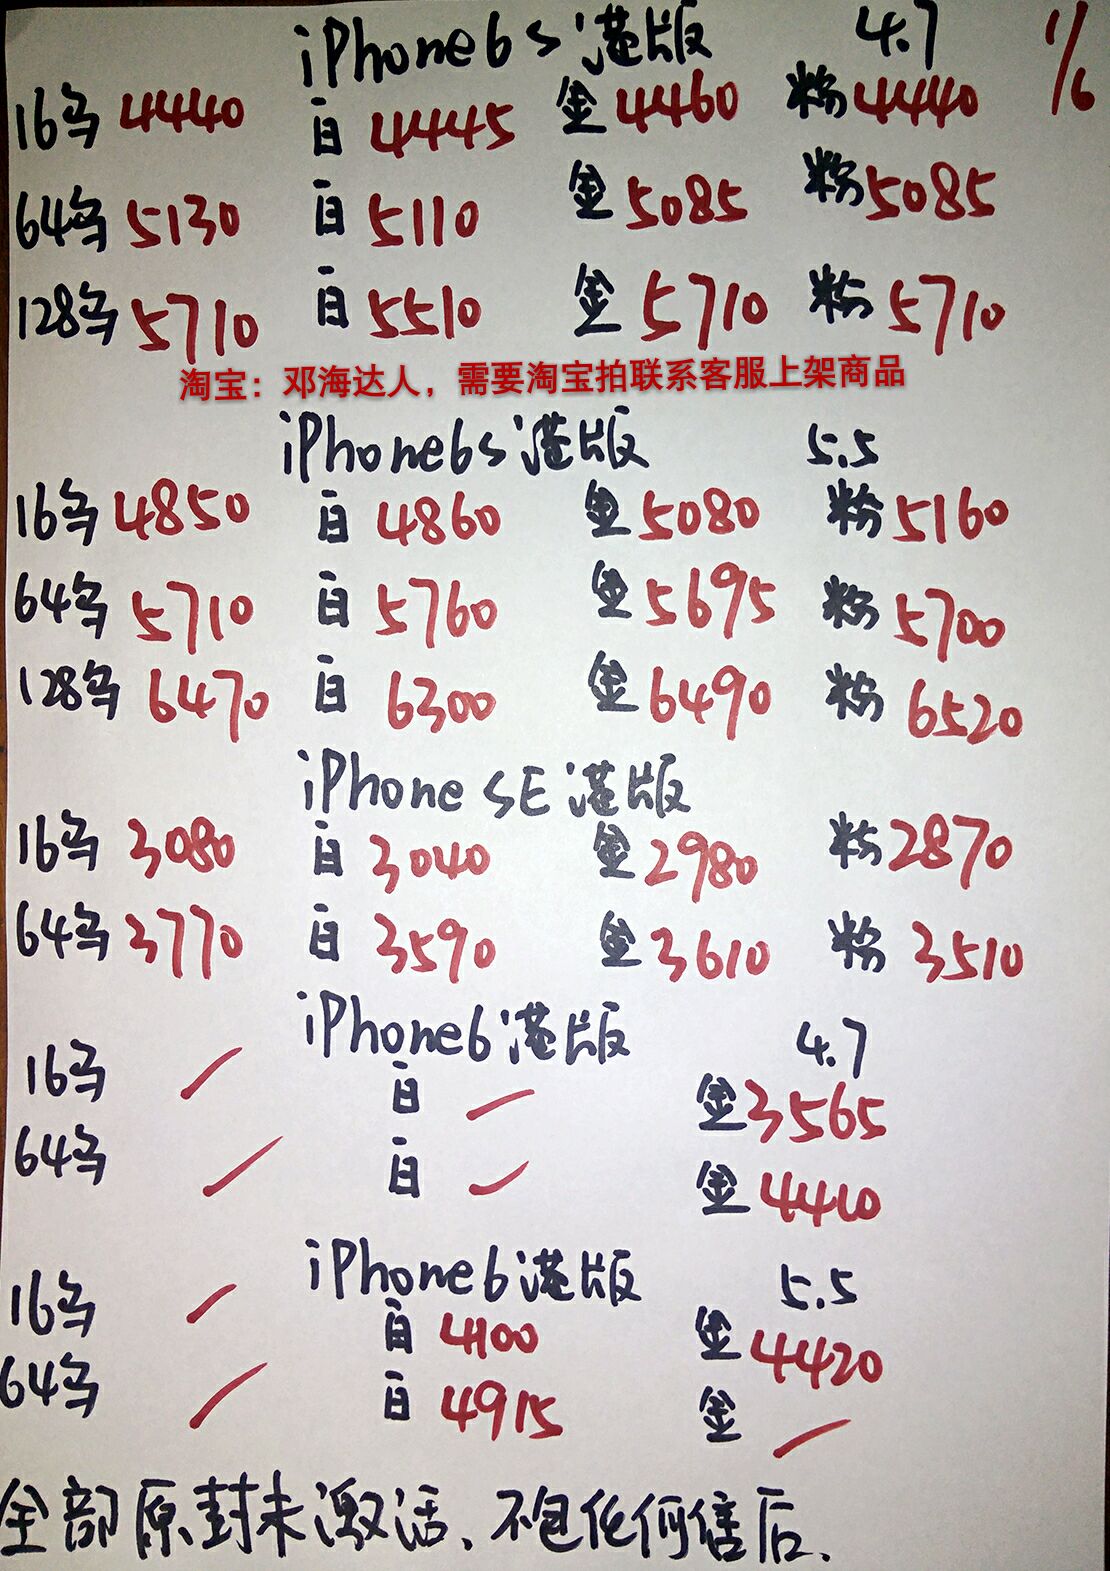 iPhone6s港版 4.7 1/6
16鸟 4440 白 4445 金 4460 粉 4440
64鸟 5130 白 5110 金 5085 粉 5085
128鸟 5710 白 5510 金 5710 粉 5710
淘宝：邓海达人，需要淘宝拍联系客服上架商品
iPhone6s港版 5.5
16鸟 4850 白 4860 金 5080 粉 5160
64鸟 5710 白 5760 金 5695 粉 5700
128鸟 6470 白 6300 金 6490 粉 6520
iPhone SE港版
16鸟 3080 白 3040 金 2980 粉 2870
64鸟 3770 白 3590 金 3610 粉 3510
iPhone6港版 4.7
16鸟 / 白 / 金 3565
64鸟 / 白 / 金 4410
iPhone6港版 5.5
16鸟 / 白 4100 金 4420
64鸟 / 白 4915 金 /
全部原封未激活、不包任何售后.